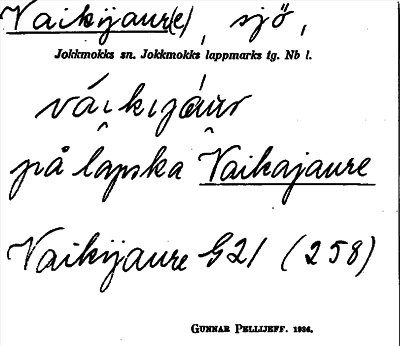 Vaikijaur(e), sjö,
Jokkmokks sn. Jokkmokks lappmarks tg. Nb l.
på lapska Vaikajaure
Vaikijaure G21 (258)
GUNNAR PELLIJEFF. 1936.